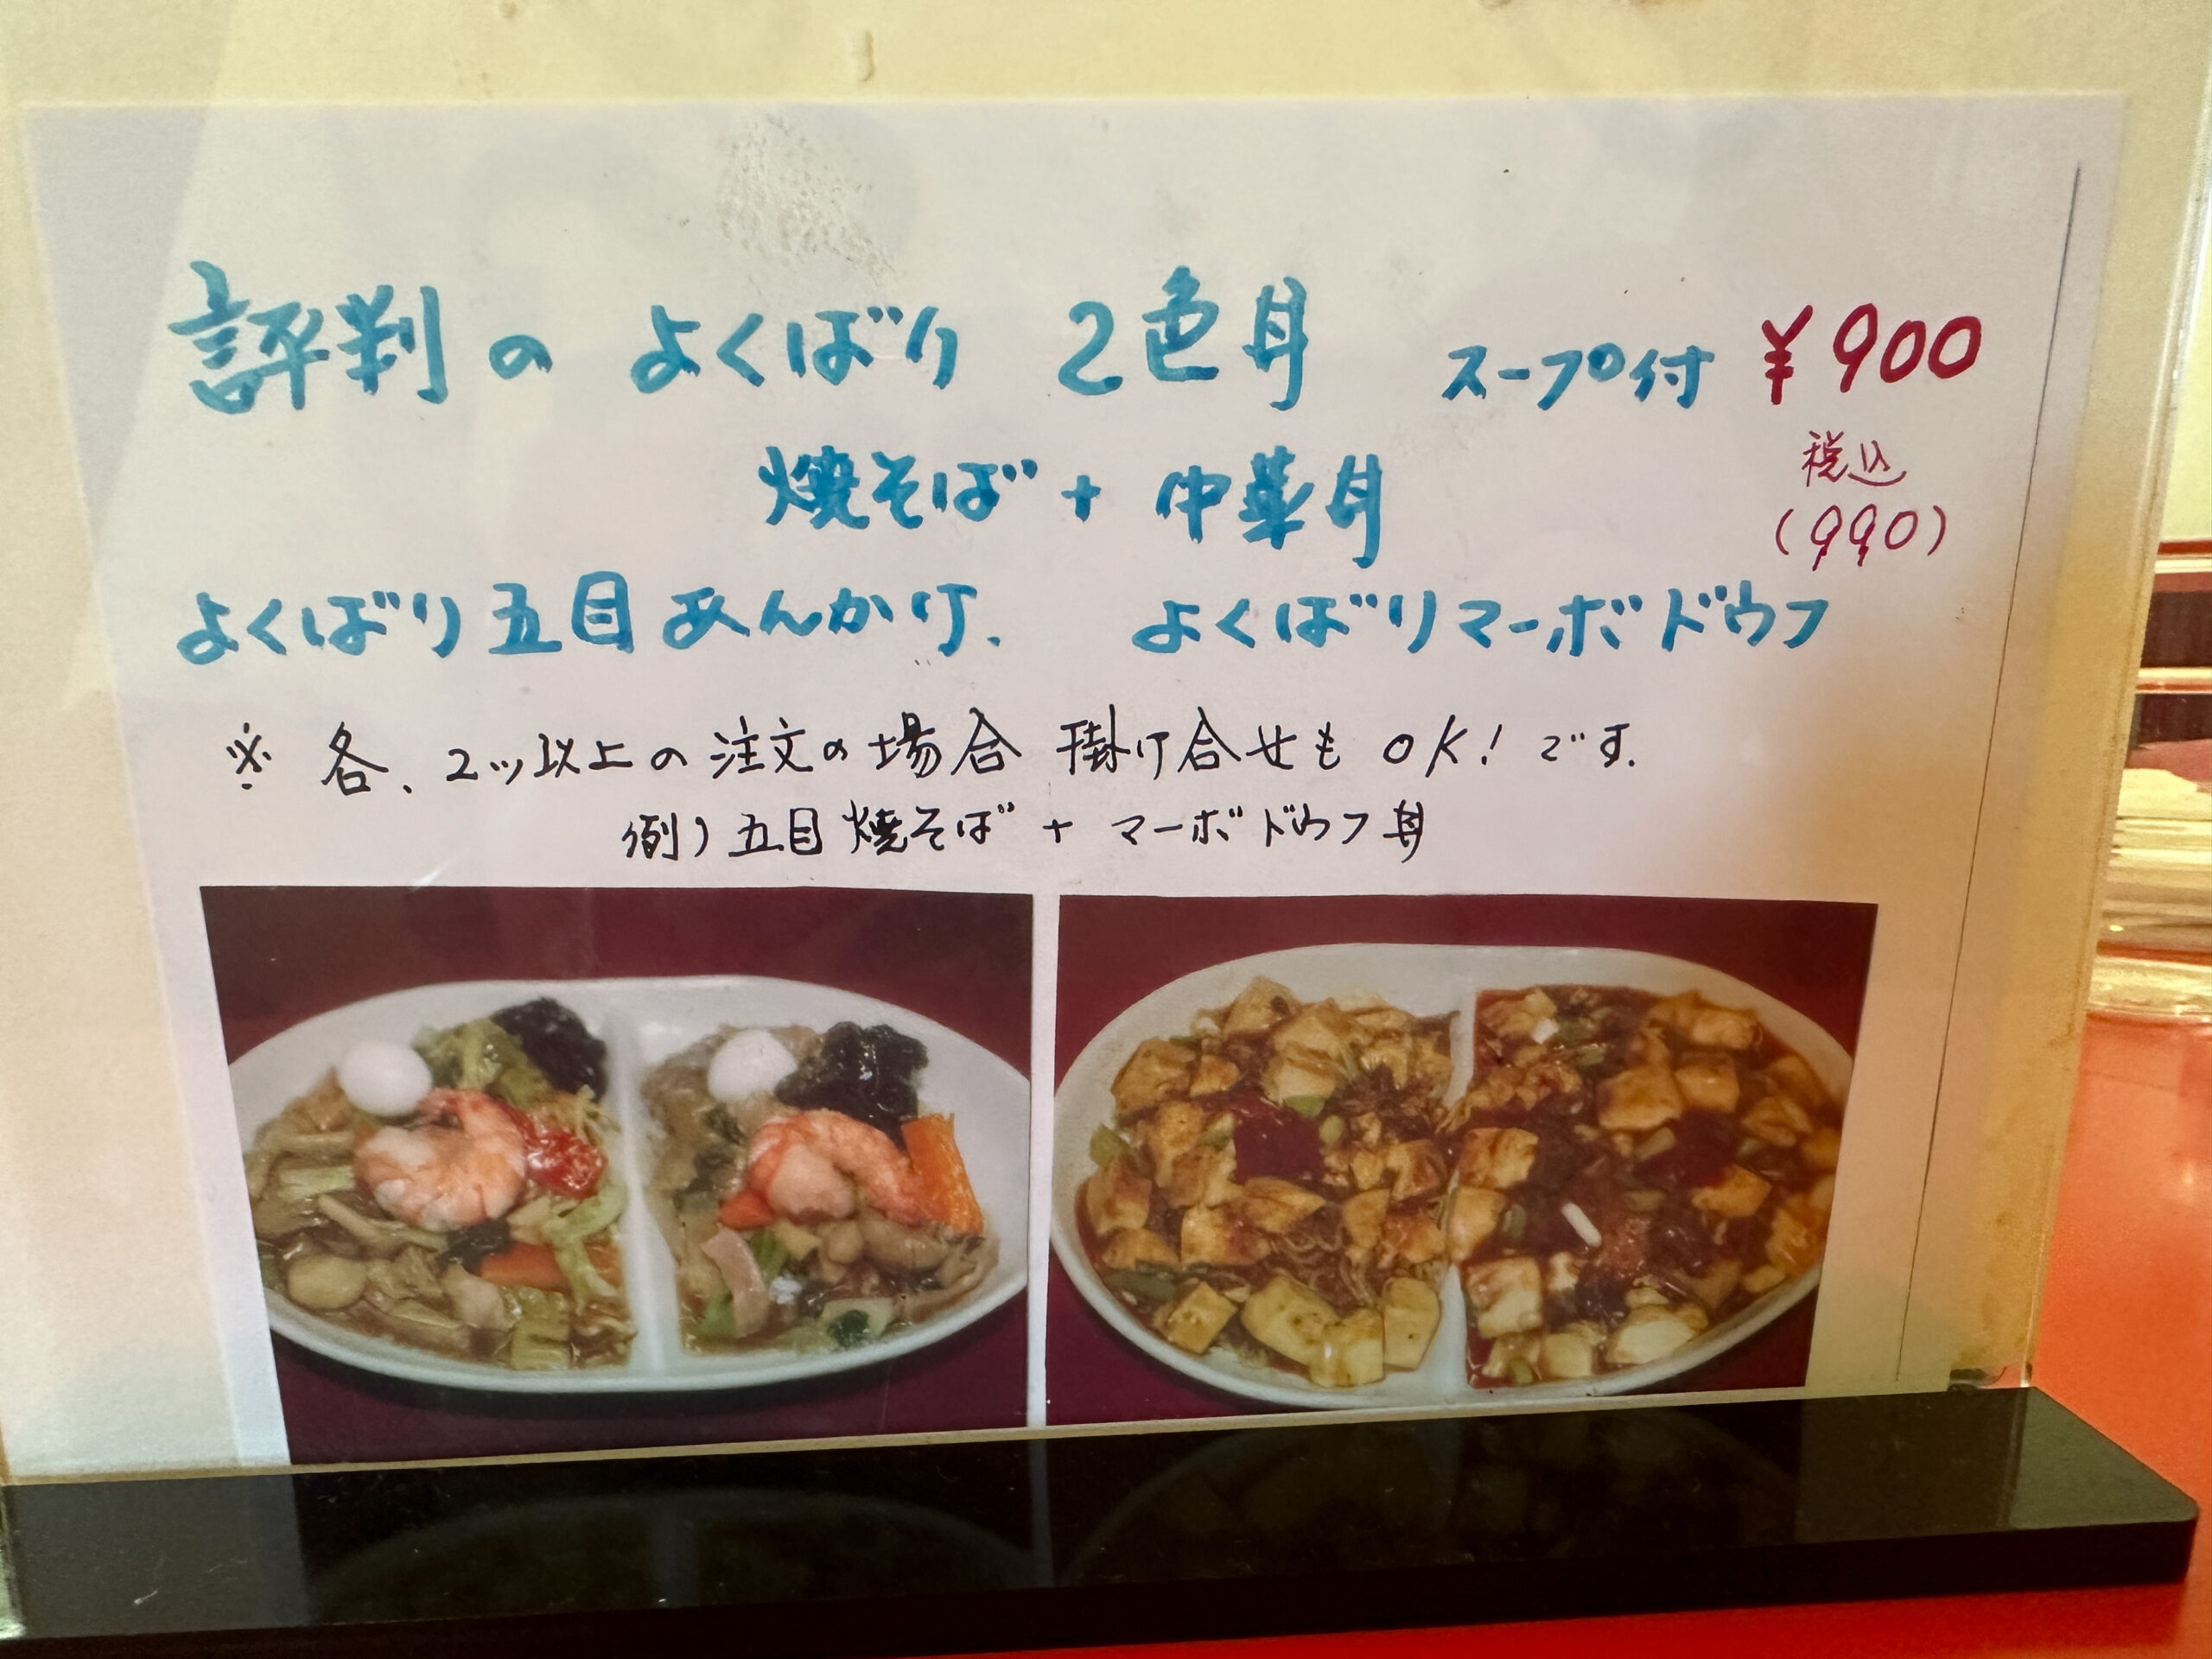 評判の よくばり 2色丼 スープ付 ¥900
税込
(990)
焼そば + 中華丼
よくばり五目あんかけ. よくばりマーボドウフ
※ 各、2ッ以上の注文の場合 掛け合せも OK! です.
例) 五目焼そば + マーボドウフ丼